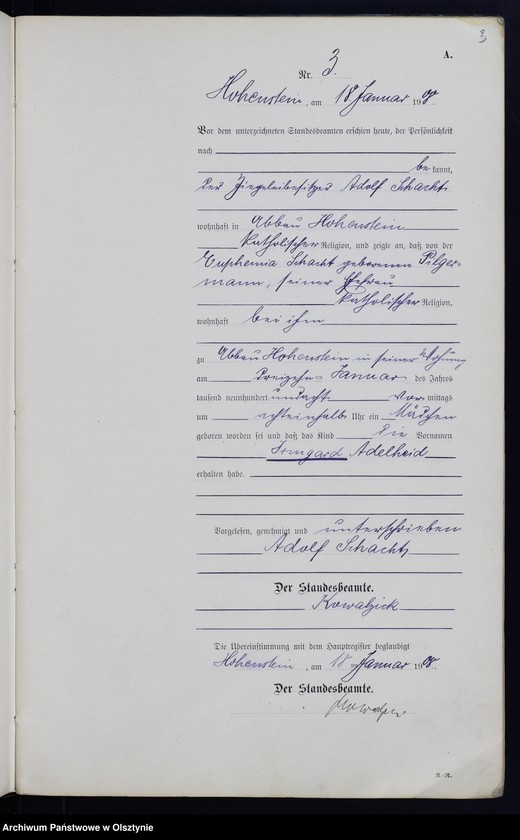 3
A.
Nr. 3.
Hohenstein, am 18 Januar 1908.
Vor dem unterzeichneten Standesbeamten erschien heute, der Persönlichkeit
nach
be kannt,
der Ziegeleibesitzer Adolf Schacht,
wohnhaft in Abbau Hohenstein
katholischer Religion, und zeigte an, daß von der
Euphemia Schacht geborenen Pilger-
mann, seiner Ehefrau
katholischer Religion,
wohnhaft bei ihm
zu Abbau Hohenstein in seiner Wohnung
am dreizehn ten Januar des Jahres
tausend neunhundert und acht Vor mittags
um achteinhalb Uhr ein Mädchen
geboren worden sei und daß das Kind die Vornamen
Irmgard Adelheid
erhalten habe.
Vorgelesen, genehmigt und unterschrieben
Adolf Schacht,
Der Standesbeamte.
Kowalzick
Die Übereinstimmung mit dem Hauptregister beglaubigt
Hohenstein, am 18 Januar 1908.
Der Standesbeamte.
K.-R.
Archiwum Państwowe w Olsztynie